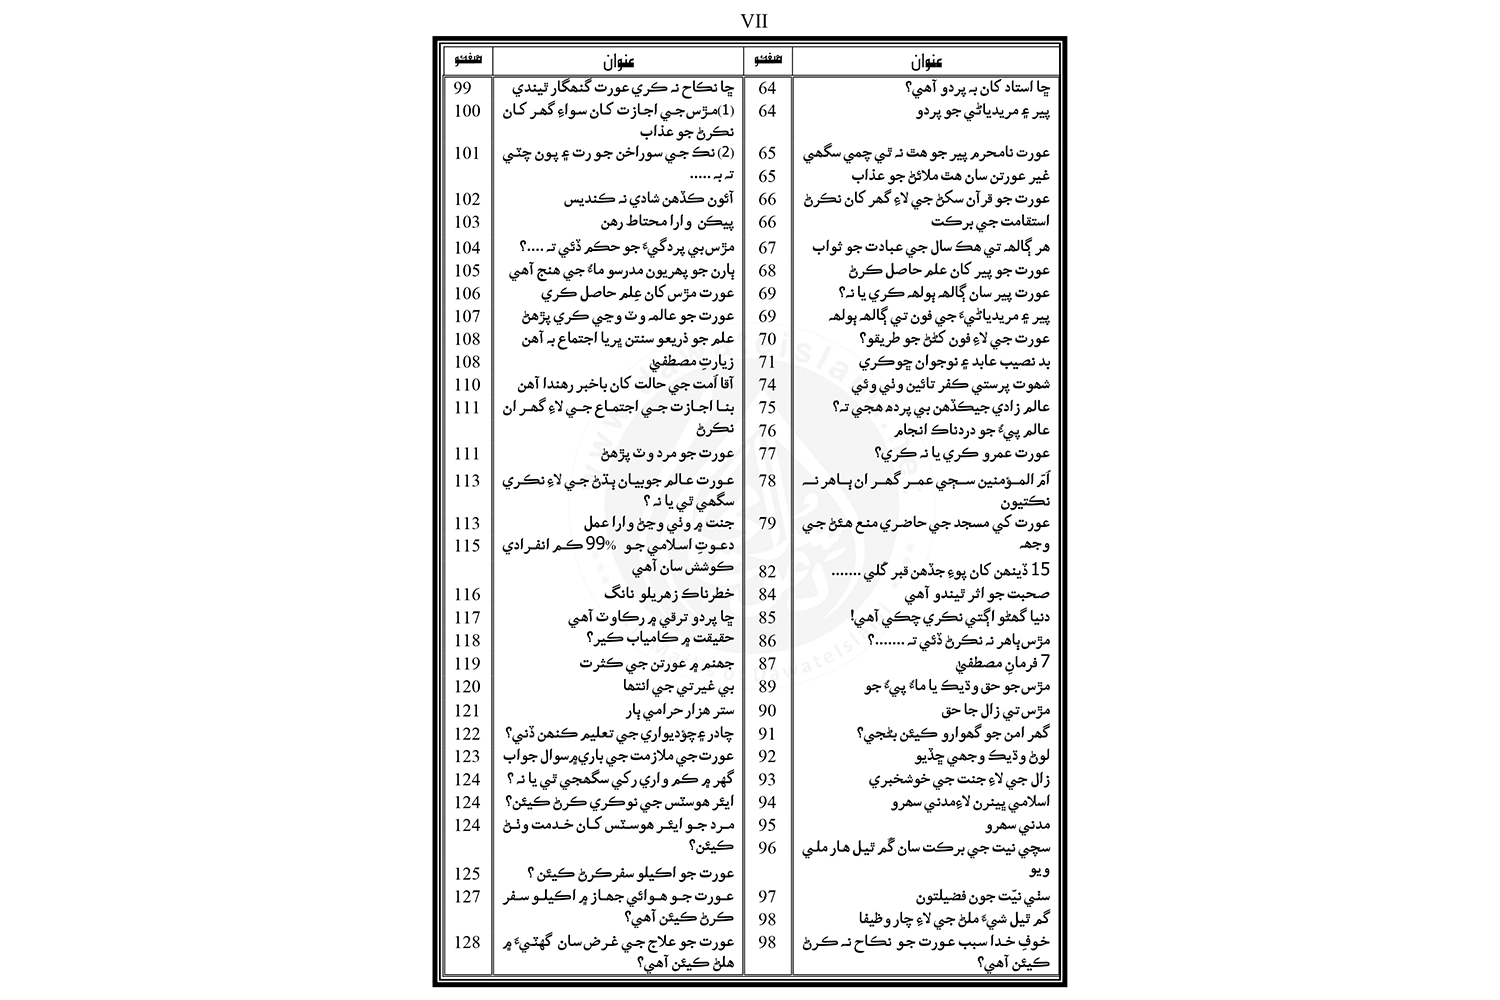 VII
عنوان صفحو
ڇا استاد کان به پردو آهي؟ 64
پير ۽ مريدياڻي جو پردو 64
عورت نامحرم پير جو هٿ نه ٿي چمي سگهي 65
غير عورتن سان هٿ ملائڻ جو عذاب 65
عورت جو قرآن سکڻ جي لاءِ گهر کان نڪرڻ 66
استقامت جي برڪت 66
هر ڳالهه تي هڪ سال جي عبادت جو ثواب 67
عورت جو پير کان علم حاصل ڪرڻ 68
عورت پير سان ڳالهه ٻولهه ڪري يا نه؟ 69
پير ۽ مريدياڻيءَ جي فون تي ڳالهه ٻولهه 69
عورت جي لاءِ فون کڻڻ جو طريقو؟ 70
بد نصيب عابد ۽ نوجوان ڇوڪري 71
شهوت پرستي ڪفر تائين وٺي وئي 74
عالم زادي جيڪڏهن بي پرده هجي ته؟ 75
عالم پيءُ جو دردناڪ انجام 76
عورت عمرو ڪري يا نه ڪري؟ 77
اُمّ المؤمنين سڄي عمر گهر ان ٻاهر نه 78
نڪتيون
عورت کي مسجد جي حاضري منع هئڻ جي 79
وجهه
15 ڏينهن کان پوءِ جڏهن قبر کُلي ....... 82
صحبت جو اثر ٿيندو آهي 84
دنيا گهڻو اڳتي نڪري چڪي آهي! 85
مڙس ٻاهر نه نڪرڻ ڏئي ته .......؟ 86
7 فرمانِ مصطفيٰ 87
مڙس جو حق وڌيڪ يا ماءُ پيءُ جو 89
مڙس تي زال جا حق 90
گهر امن جو گهوارو ڪيئن بڻجي؟ 91
لوڻ وڌيڪ وجهي ڇڏيو 92
زال جي لاءِ جنت جي خوشخبري 93
اسلامي ڀينرن لاءِ مدني سهرو 94
مدني سهرو 95
سچي نيت جي برڪت سان گُم ٿيل هار ملي 96
ويو
سٺي نيّت جون فضيلتون 97
گم ٿيل شيءَ ملڻ جي لاءِ چار وظيفا 98
خوفِ خدا سبب عورت جو نڪاح نه ڪرڻ 98
ڪيئن آهي؟
عنوان صفحو
ڇا نڪاح نه ڪري عورت گنهگار ٿيندي 99
(1) مڙس جي اجازت کان سواءِ گهر کان 100
نڪرڻ جو عذاب
(2) نڪ جي سوراخن جو رت ۽ پون چٽي 101
ته به .....
آئون ڪڏهن شادي نه ڪنديس 102
پيڪن وارا محتاط رهن 103
مڙس بي پردگيءَ جو حڪم ڏئي ته ....؟ 104
ٻارن جو پهريون مدرسو ماءُ جي هنج آهي 105
عورت مڙس کان عِلم حاصل ڪري 106
عورت جو عالمه وٽ وڃي ڪري پڙهڻ 107
علم جو ذريعو سنتن ڀريا اجتماع به آهن 108
زيارتِ مصطفيٰ 108
آقا اُمت جي حالت کان باخبر رهندا آهن 110
بنا اجازت جي اجتماع جي لاءِ گهر ان 111
نڪرڻ
عورت جو مرد وٽ پڙهڻ 111
عورت عالم جو بيان ٻڌڻ جي لاءِ نڪري 113
سگهي ٿي يا نه ؟
جنت ۾ وٺي وڃڻ وارا عمل 113
دعوتِ اسلامي جو 99% ڪم انفرادي 115
ڪوشش سان آهي
خطرناڪ زهريلو نانگ 116
ڇا پردو ترقي ۾ رڪاوٽ آهي 117
حقيقت ۾ ڪامياب ڪير؟ 118
جهنم ۾ عورتن جي ڪثرت 119
بي غيرتي جي انتها 120
ستر هزار حرامي ٻار 121
چادر ۽ چؤديواري جي تعليم ڪنهن ڏني؟ 122
عورت جي ملازمت جي باري ۾ سوال جواب 123
گهر ۾ ڪم واري رکي سگهجي ٿي يا نه ؟ 124
ايئر هوسٽس جي نوڪري ڪرڻ ڪيئن؟ 124
مرد جو ايئر هوسٽس کان خدمت وٺڻ 124
ڪيئن؟
عورت جو اڪيلو سفر ڪرڻ ڪيئن ؟ 125
عورت جو هوائي جهاز ۾ اڪيلو سفر 127
ڪرڻ ڪيئن آهي؟
عورت جو علاج جي غرض سان گهٽيءَ ۾ 128
هلڻ ڪيئن آهي؟